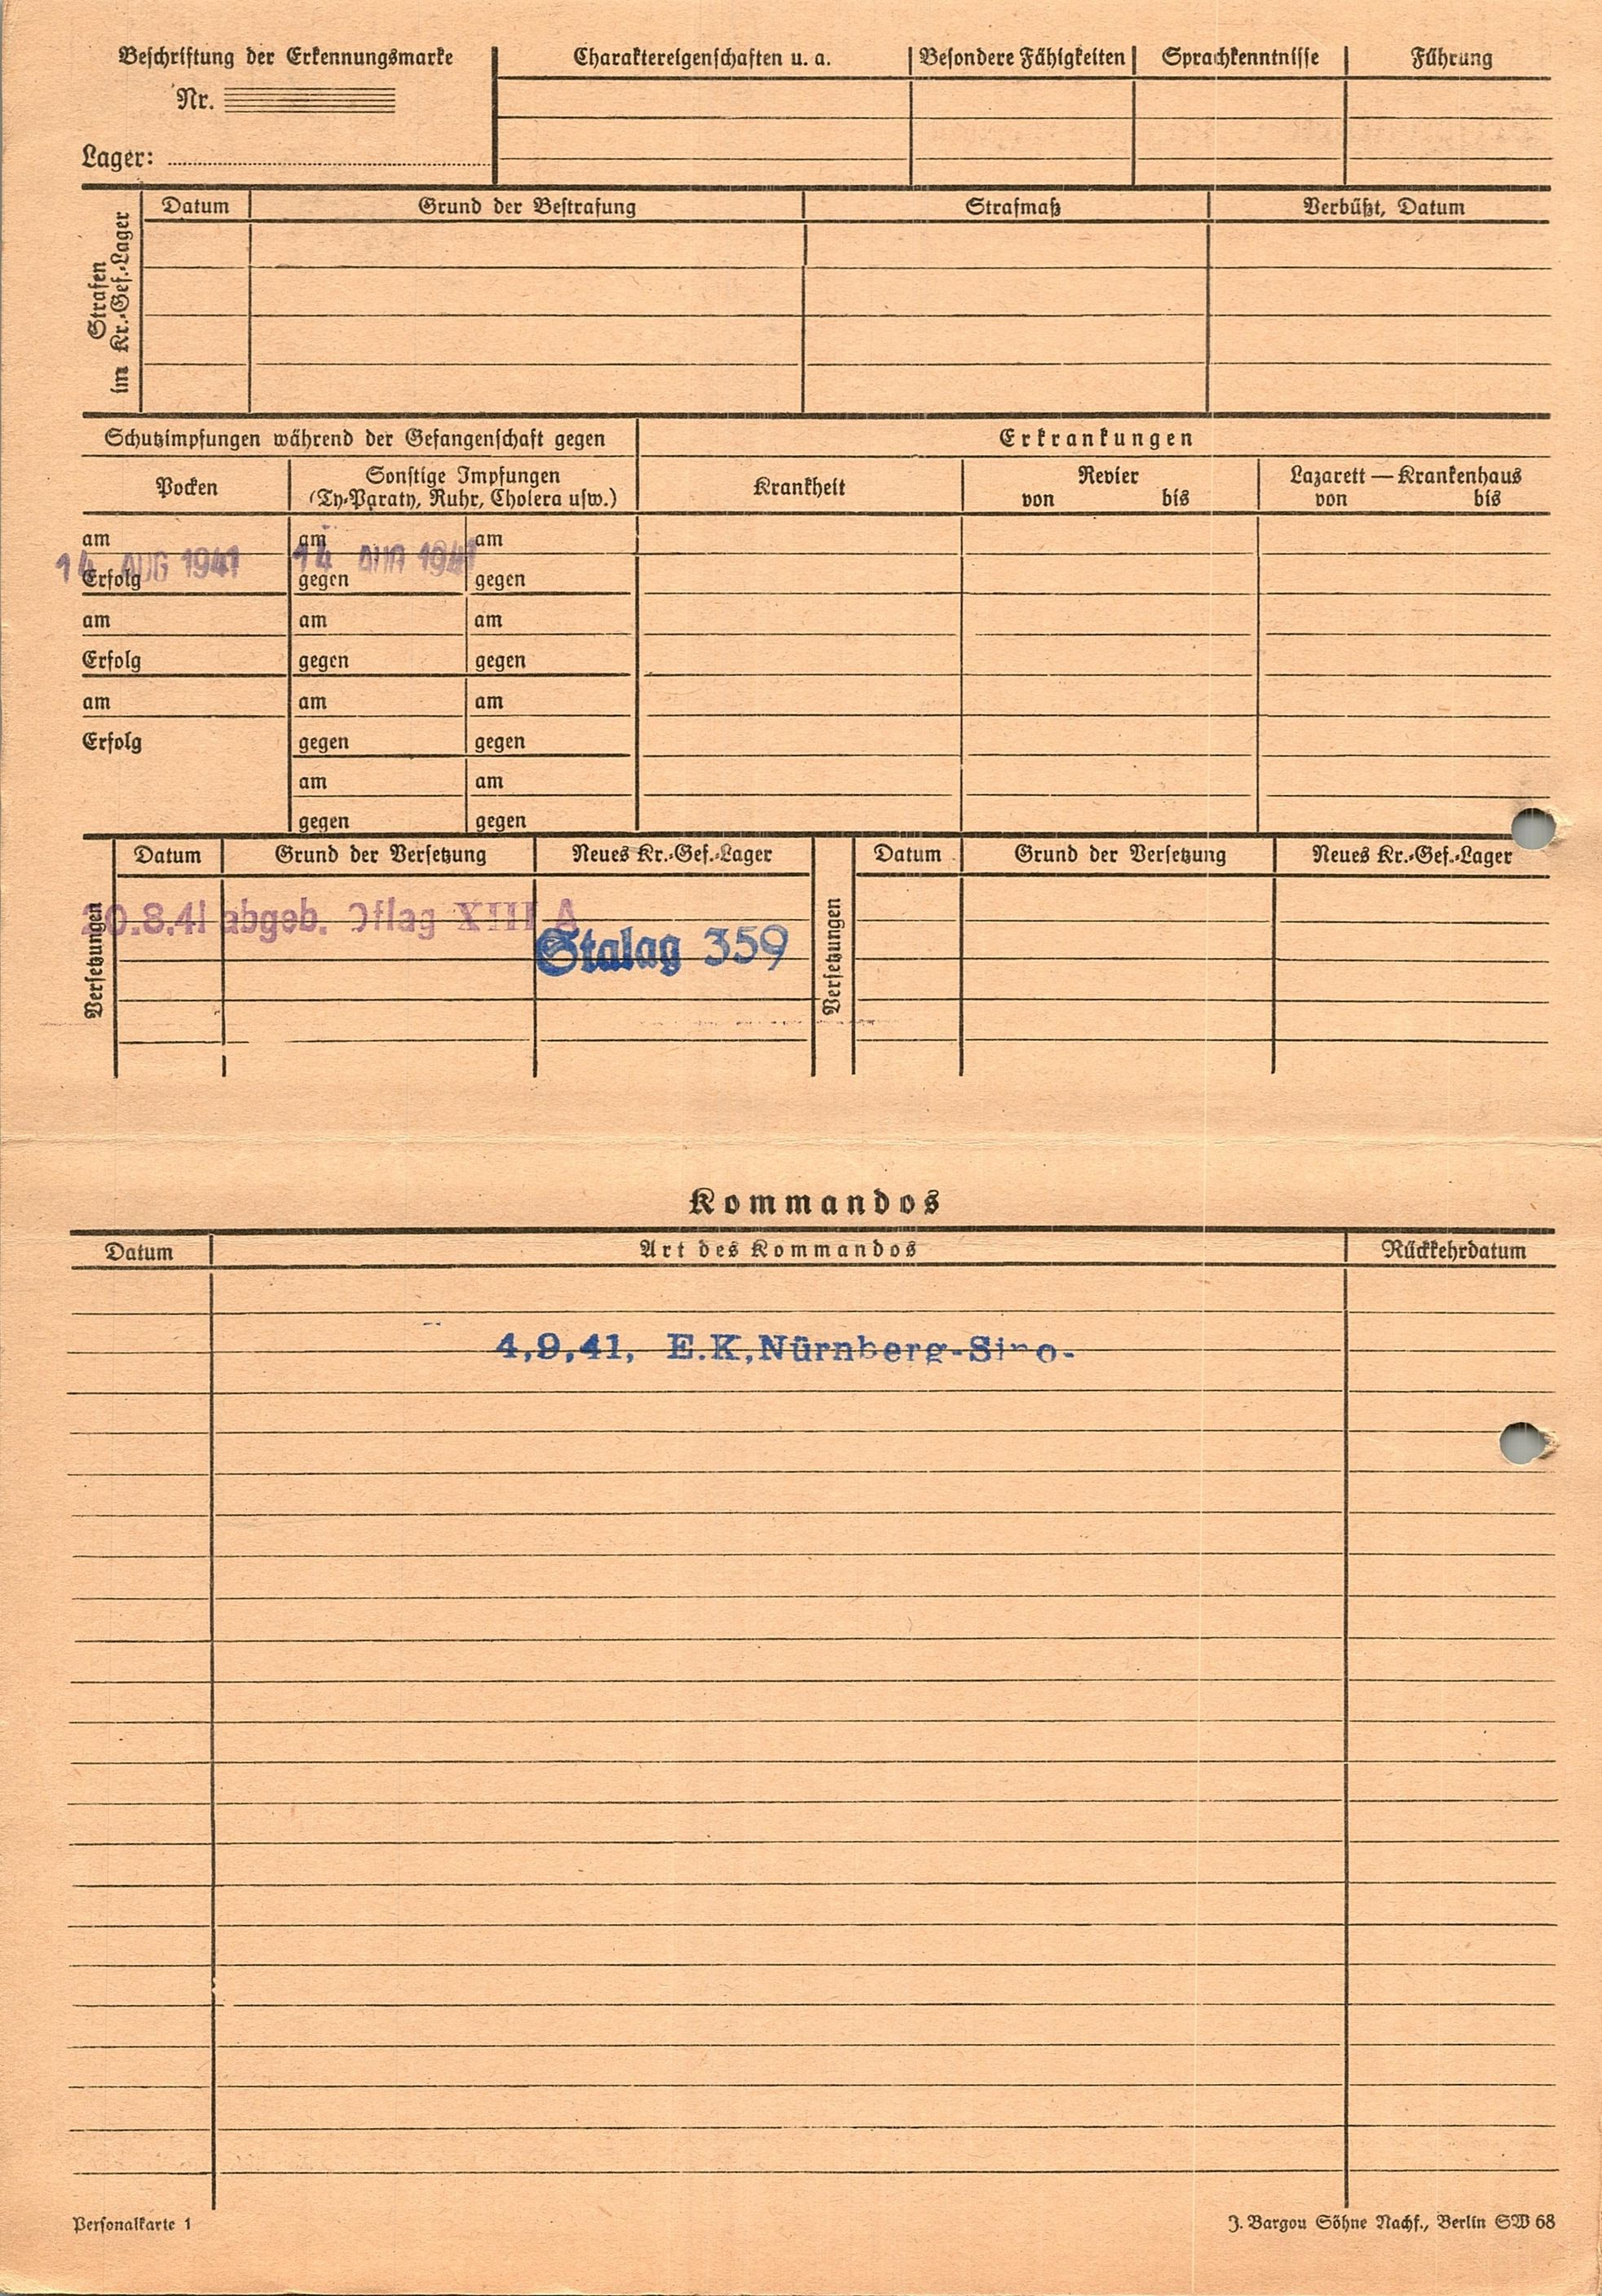 Beschriftung der Erkennungsmarke
Nr.
Lager:
Charaktereigenschaften u. a.
Besondere Fähigkeiten
Sprachkenntnisse
Führung
Strafen
im Kr.-Gef.-Lager
Datum
Grund der Bestrafung
Strafmaß
Verbüßt, Datum
Schutzimpfungen während der Gefangenschaft gegen
Erkrankungen
Pocken
Sonstige Impfungen
(Ty-Paraty, Ruhr, Cholera usw.)
Krankheit
Revier
von bis
Lazarett — Krankenhaus
von bis
am am am
14 AUG 1941 14 AUG 1941
Erfolg gegen gegen
am am am
Erfolg gegen gegen
am am am
Erfolg gegen gegen
am am
gegen gegen
Versetzungen
Datum Grund der Versetzung Neues Kr.-Gef.-Lager
20.8.41 abgeb. Oflag XIII A
Stalag 359
Versetzungen
Datum Grund der Versetzung Neues Kr.-Gef.-Lager
Kommandos
Datum Art des Kommandos Rückkehrdatum
4,9,41, E.K,Nürnberg-
Personalkarte 1
J. Bargou Söhne Nachf., Berlin SW 68